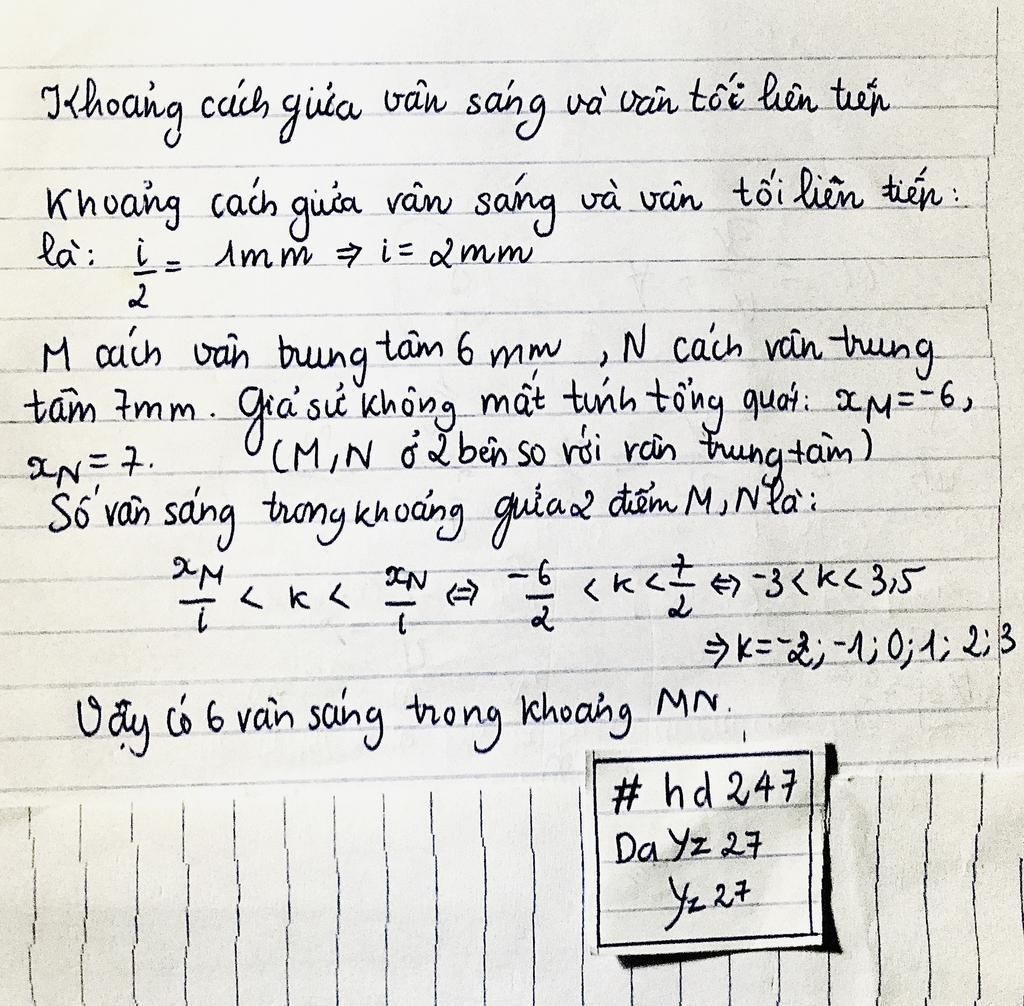 Khoảng cách giữa vân sáng và vân tối liên tiếp
Khoảng cách giữa vân sáng và vân tối liên tiếp:
là: i/2 = 1mm ⇒ i = 2mm
M cách vân trung tâm 6 mm , N cách vân trung
tâm 7mm. Giả sử không mất tính tổng quát: xM = -6,
xN = 7. (M, N ở 2 bên so với vân trung tâm)
Số vân sáng trong khoảng giữa 2 điểm M, N là:
xM/i < k < xN/i ⇔ -6/2 < k < 7/2 ⇔ -3 < k < 3,5
⇒ k = -2; -1; 0; 1; 2; 3
Vậy có 6 vân sáng trong khoảng MN.
# hd 247
Da Yz 27
Yz 27